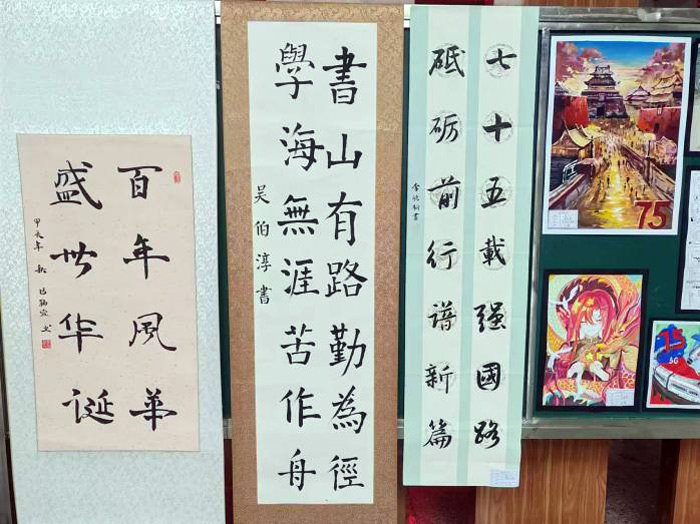 百年風華
盛世华诞
甲辰年秋
書山有路勤為徑
學海無涯苦作舟
吴伯淳書
七十五載强國路
砥砺前行谱新篇
75
75
5G